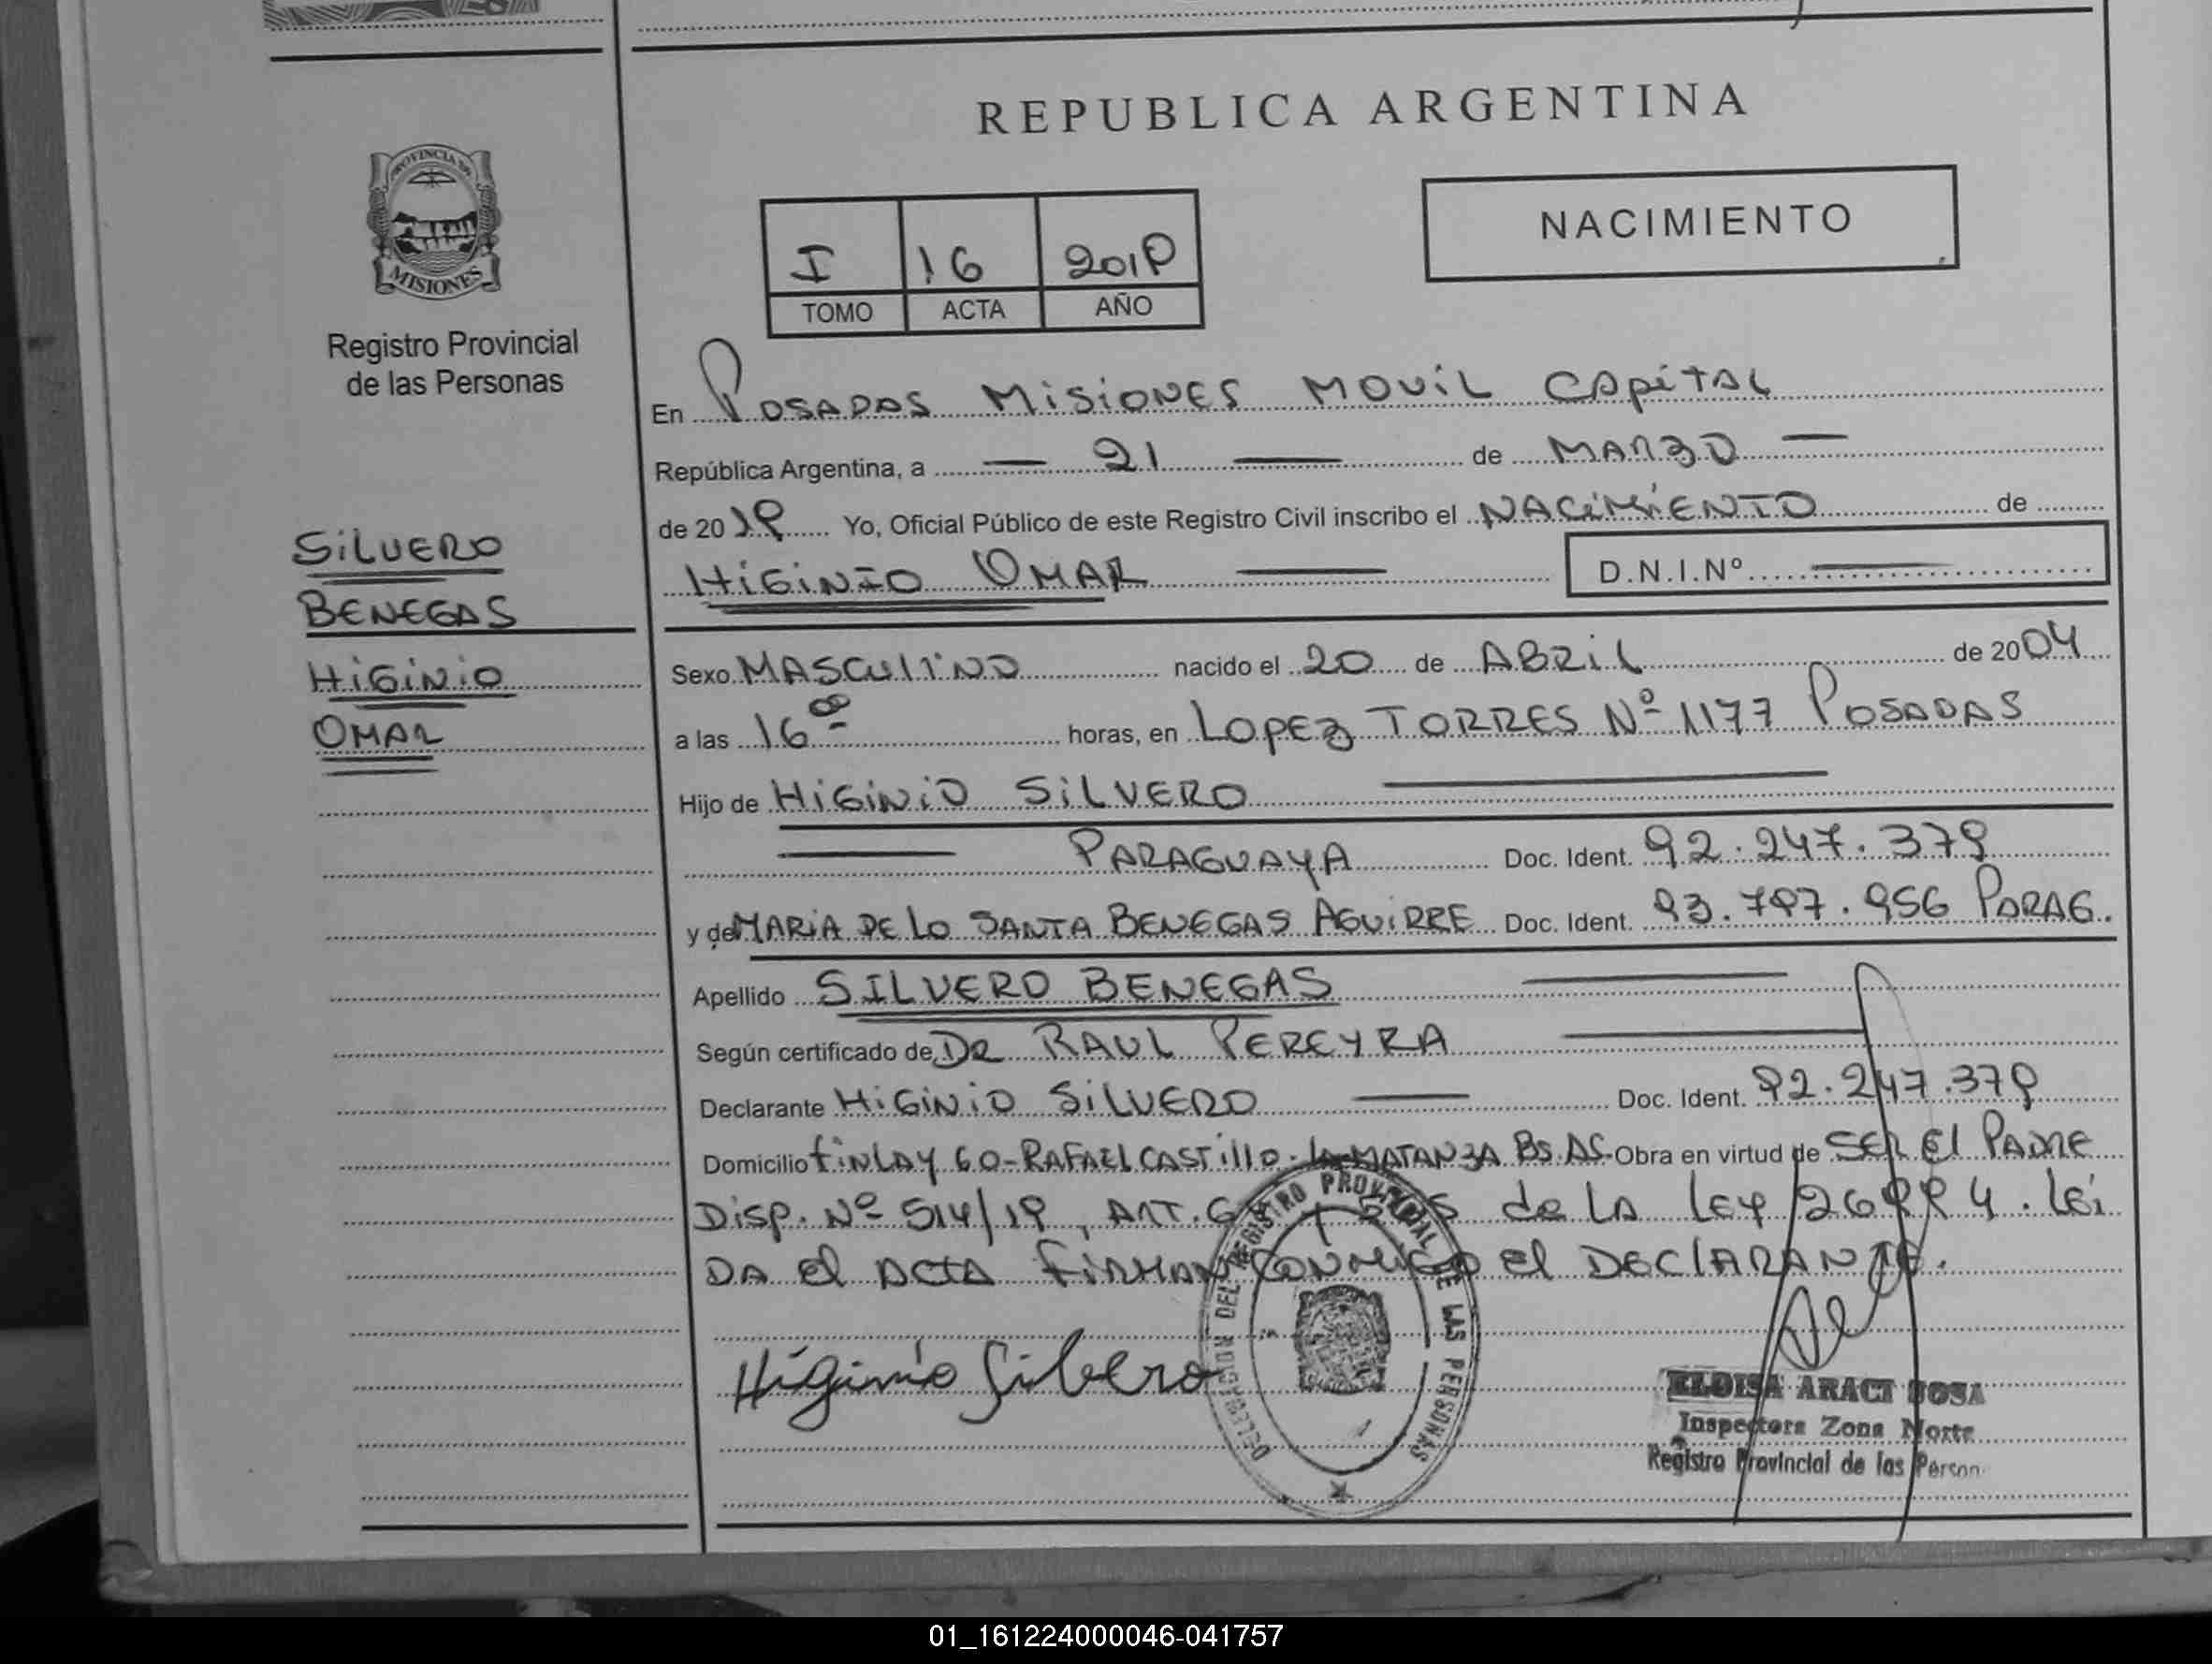 REPUBLICA ARGENTINA
PROVINCIA DE
MISIONES
Registro Provincial
de las Personas
NACIMIENTO
I 16 2019
TOMO ACTA AÑO
En POSADAS MISIONES MOVIL CAPITAL
República Argentina, a — 21 — de MARZO —
de 2019 Yo, Oficial Público de este Registro Civil inscribo el NACIMIENTO de
HIGINIO OMAR — D.N.I.Nº —
SILVERO
BENEGAS
HIGINIO
OMAR
Sexo MASCULINO nacido el 20 de ABRIL de 2004
a las 16 00 horas, en LOPEZ TORRES Nº 1177 POSADAS
Hijo de HIGINIO SILVERO —
— PARAGUAYA Doc. Ident. 92.247.379
y de MARIA DE LO SANTA BENEGAS AGUIRRE Doc. Ident. 93.797.956 PARAG.
Apellido SILVERO BENEGAS —
Según certificado de DR RAUL PEREYRA —
Declarante HIGINIO SILVERO — Doc. Ident. 92.247.379
Domicilio FINLAY 60-RAFAEL CASTILLO-LA MATANZA BS AS. Obra en virtud de SER EL PADRE
DISP. Nº 514/19, ART. de LA LEY 26994. LEI
DA EL ACTA FIRMAN CONMIGO EL DECLARANTE.
Higinio Silvero
DELEGACION DEL REGISTRO PROVINCIAL DE LAS PERSONAS
ELOISA ARACI SOSA
Inspectora Zona Norte
Registro Provincial de las Person
01_161224000046-041757